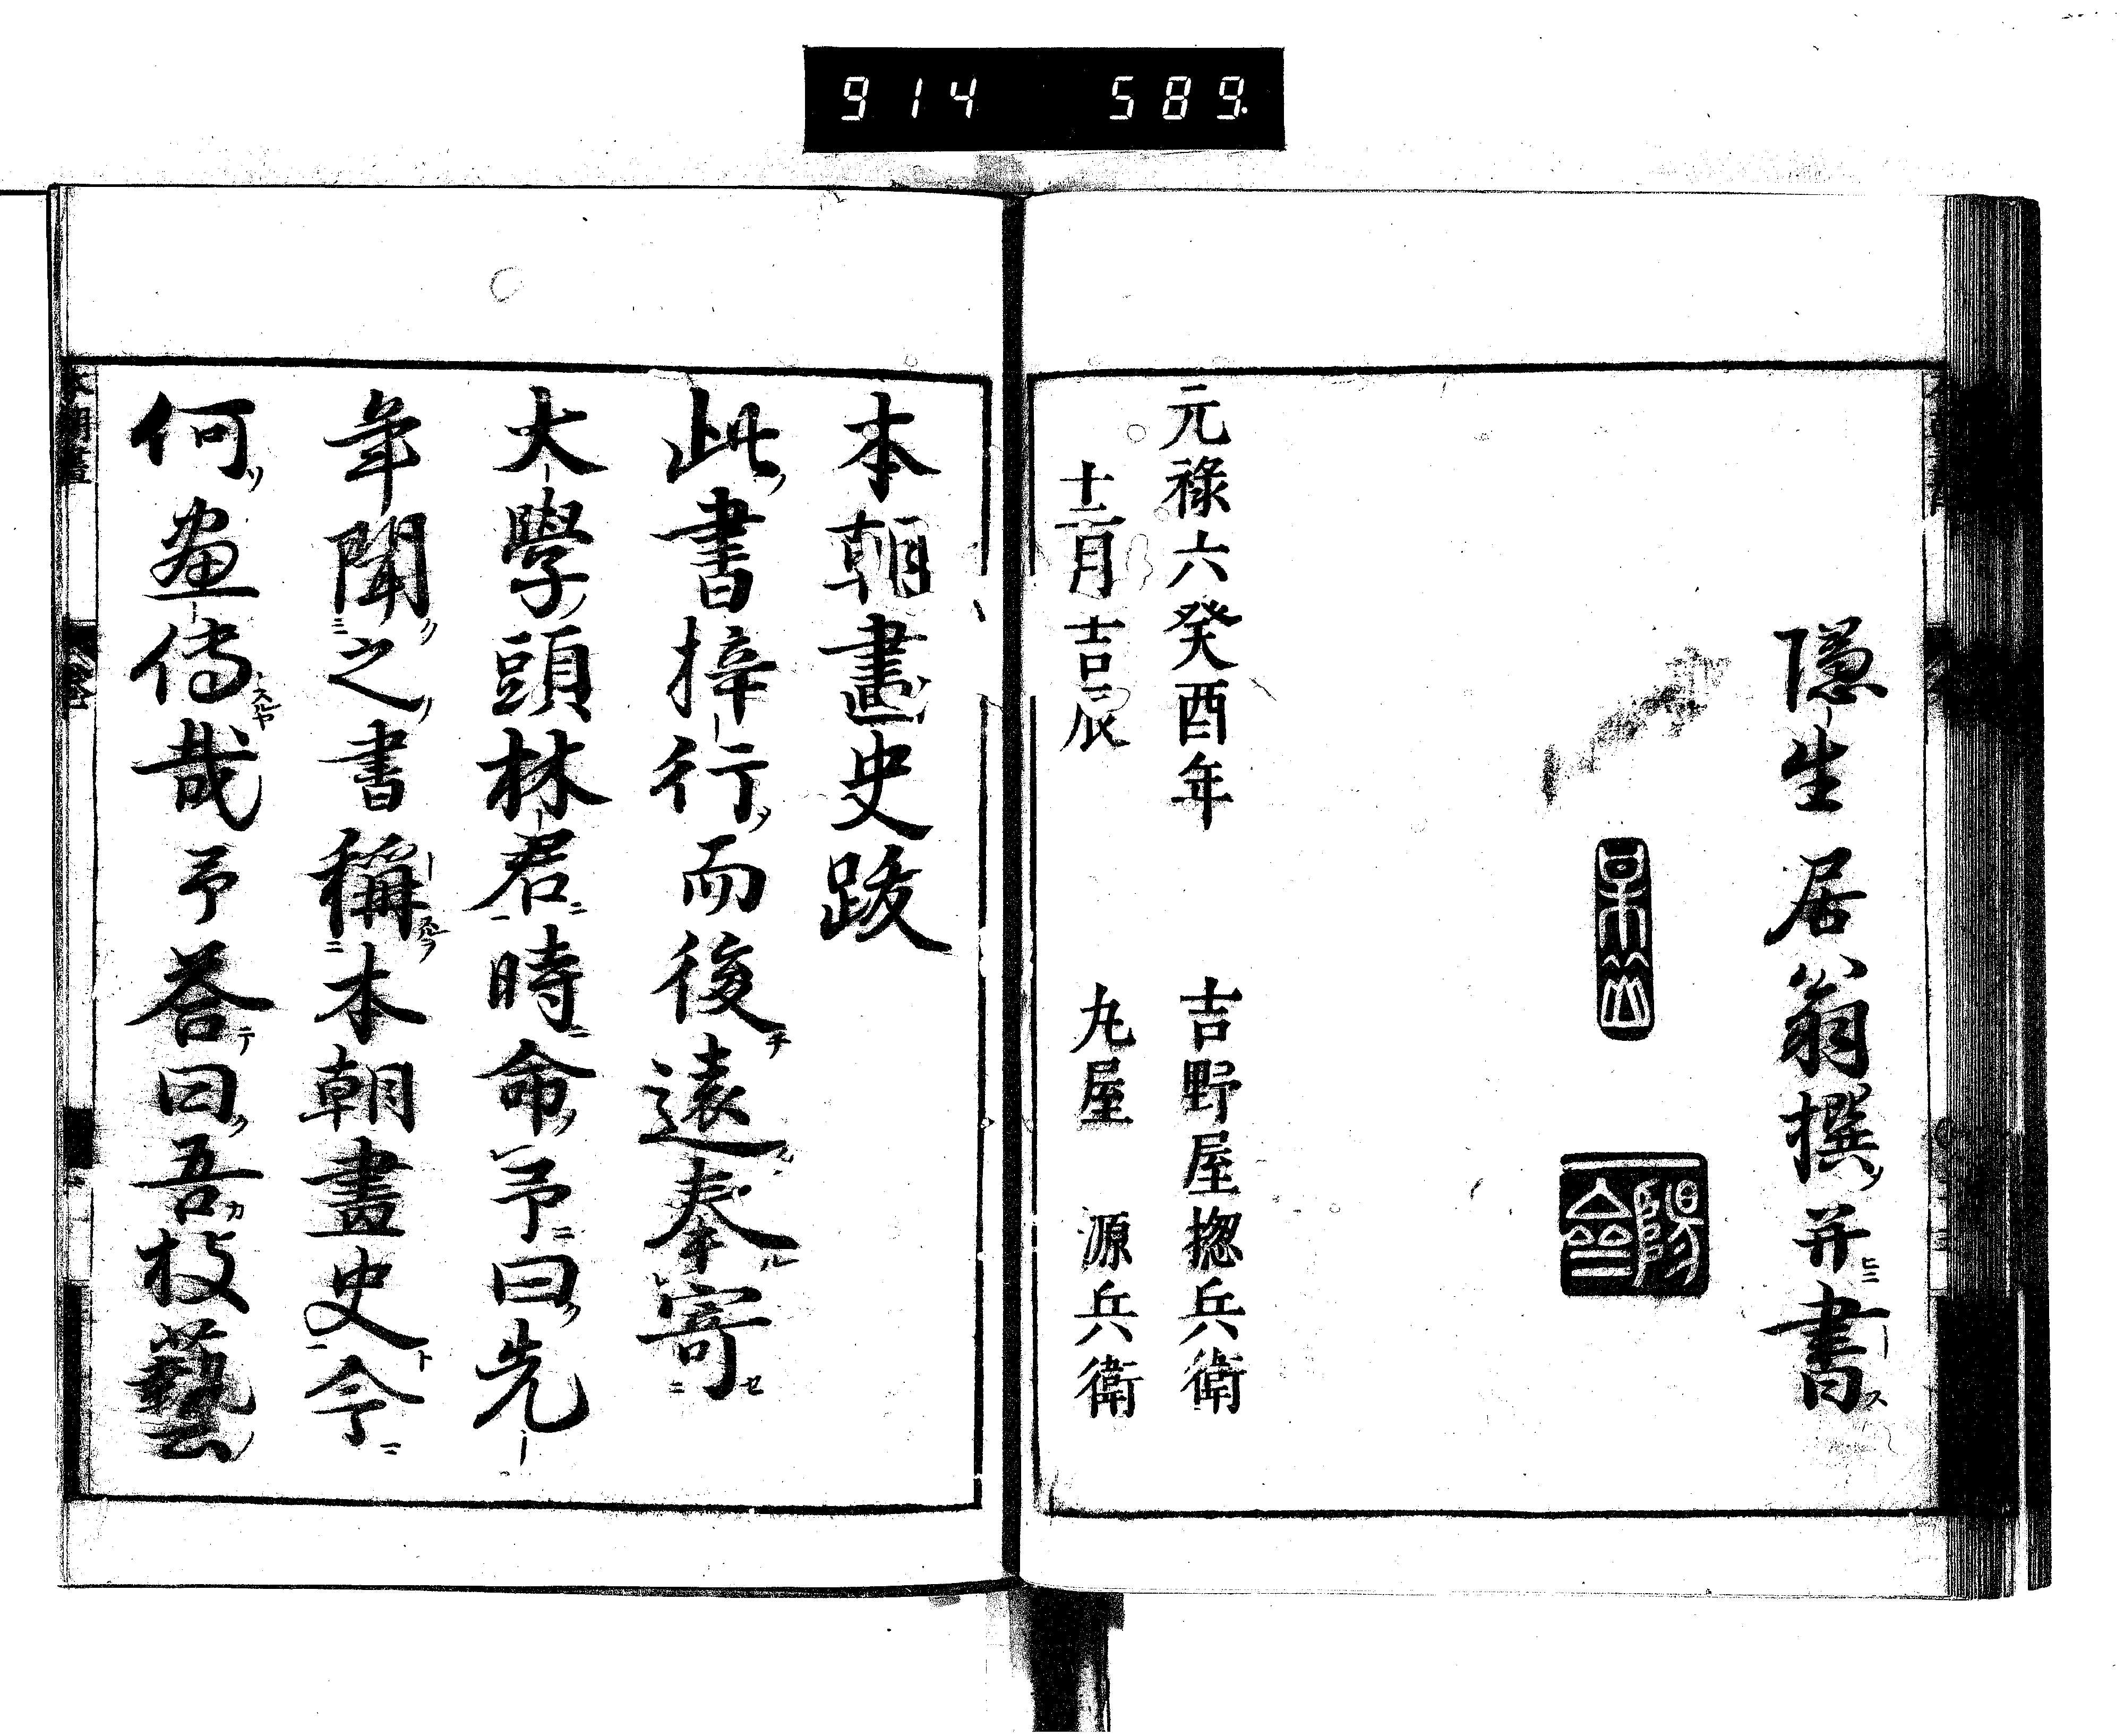 914 589.
隱生居翁撰并書
元祿六癸酉年 吉野屋揔兵衛
十二月吉辰 丸屋 源兵衛
本朝畫史跋
此書梓行而後遠奉寄
大學頭林君時命予曰先
年聞之書稱本朝畫史今
何畫傳哉予答曰吾技藝